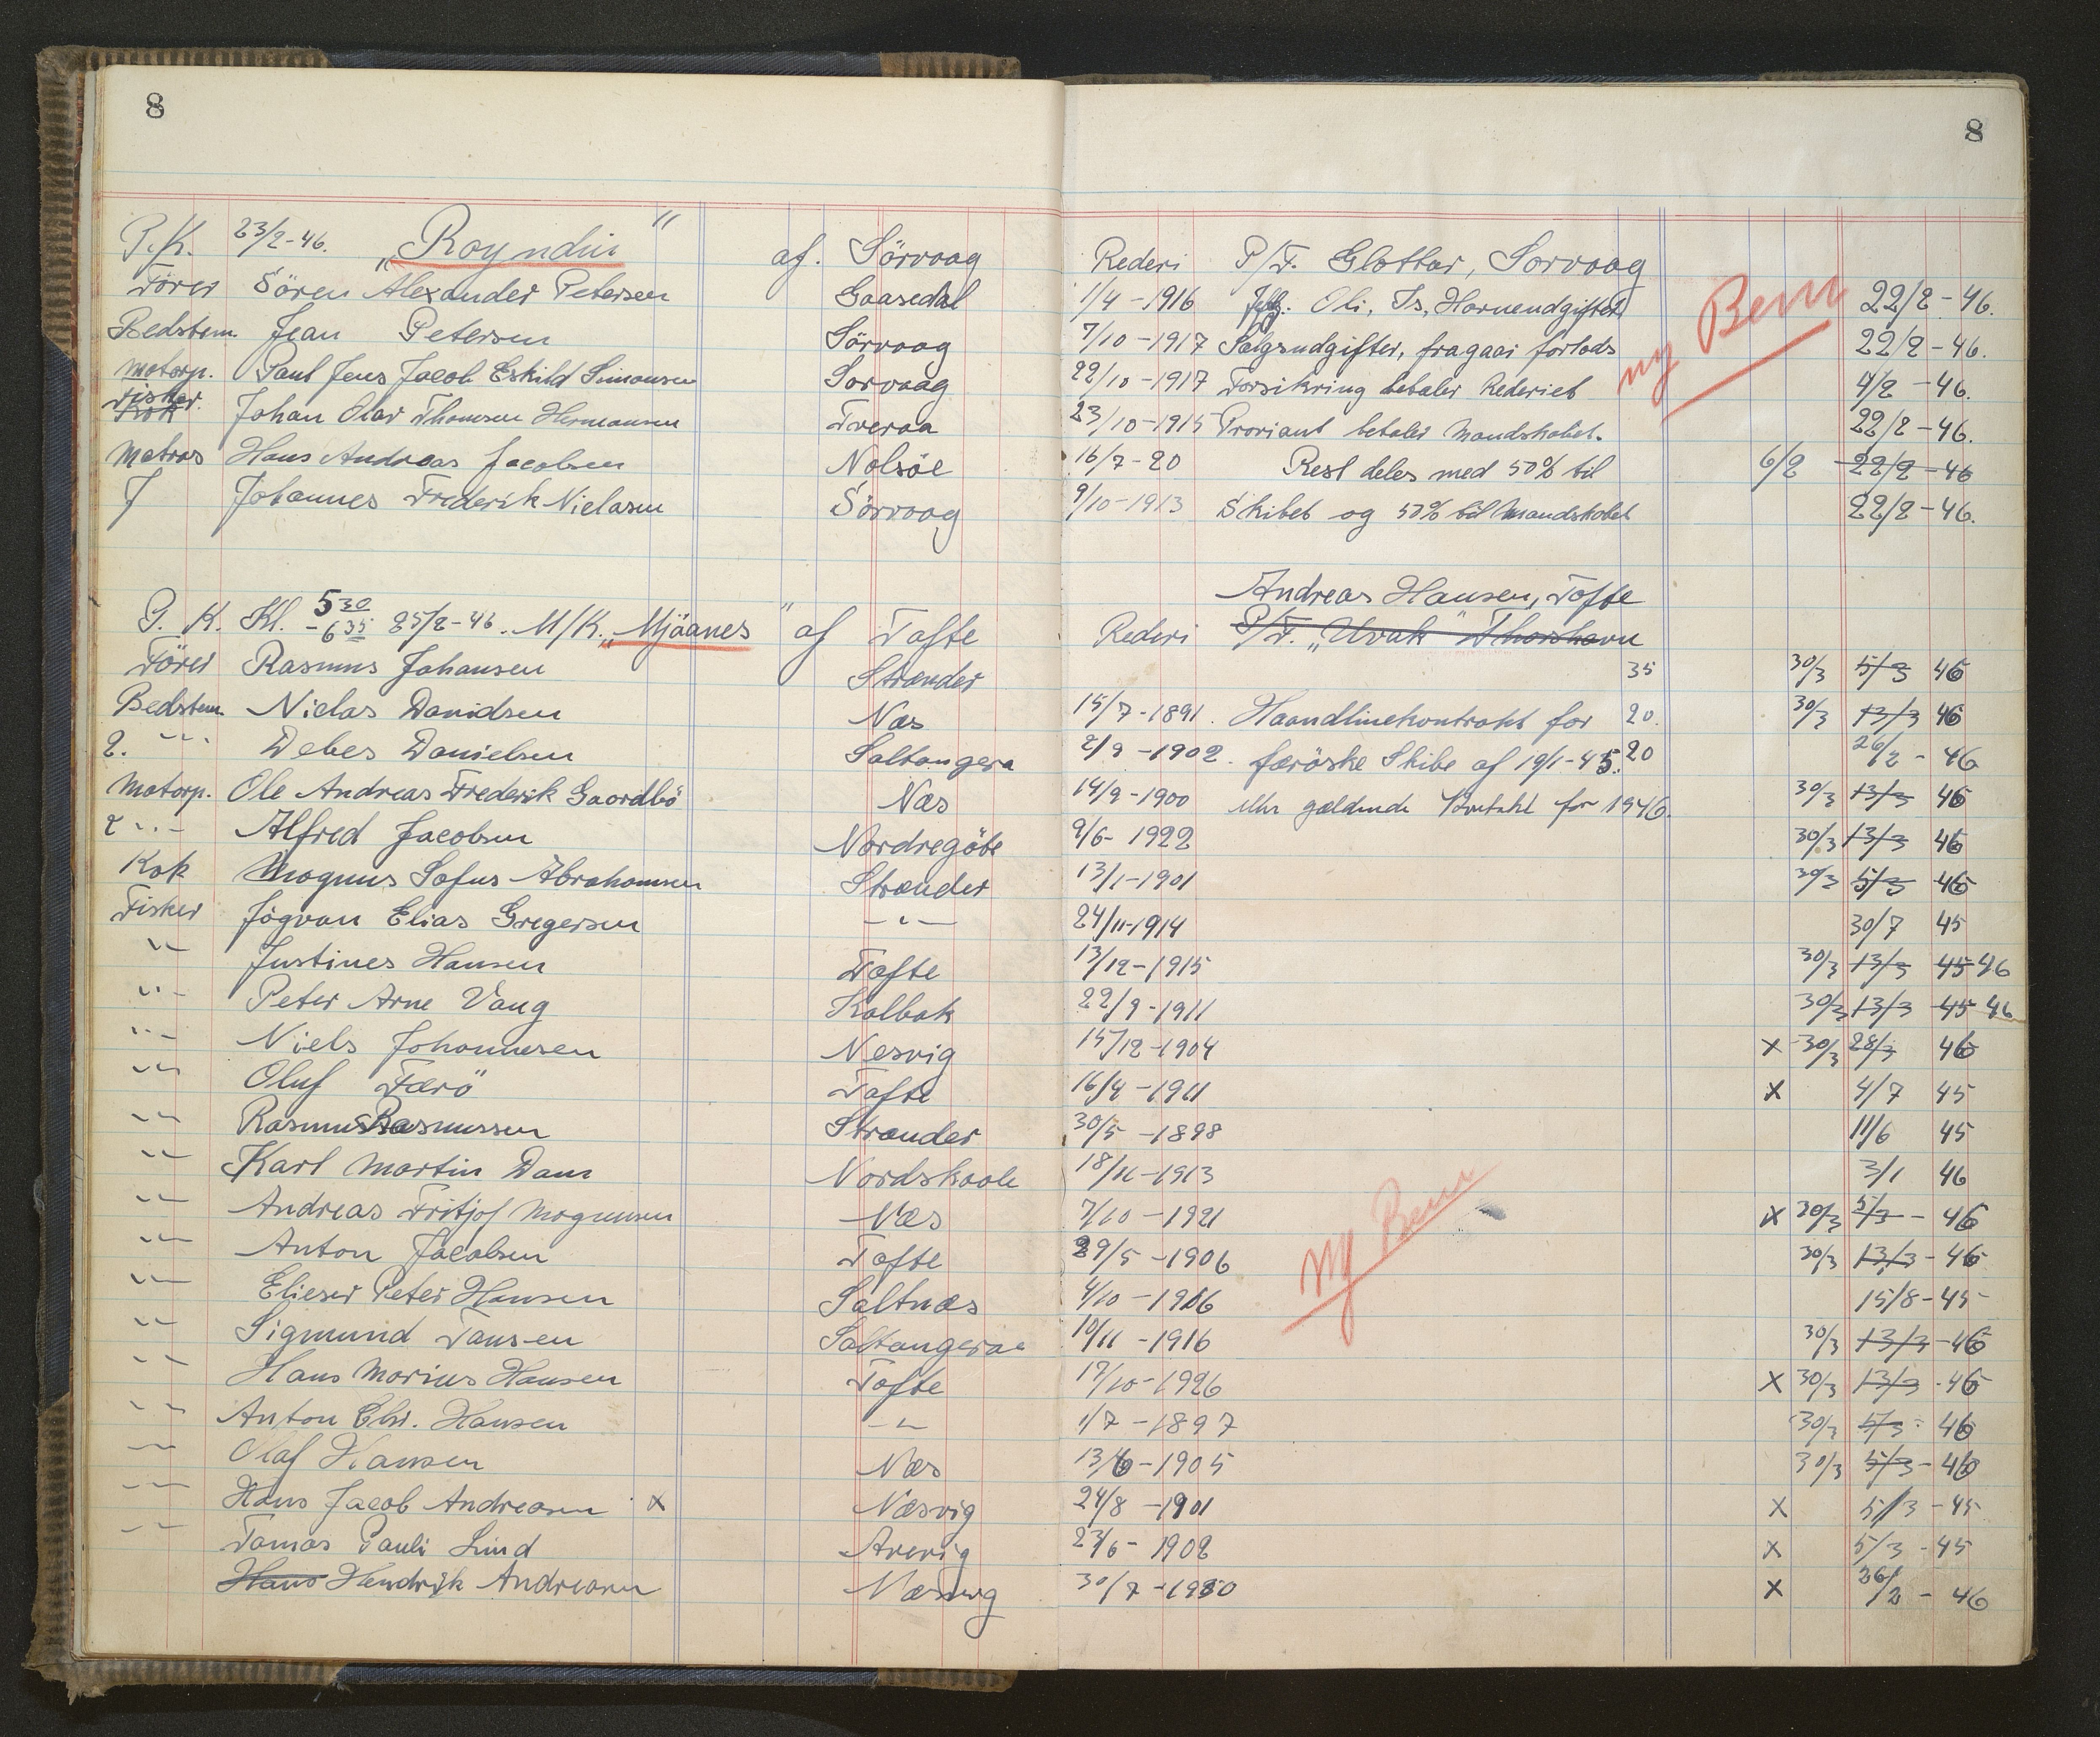 8
8
P.K. 23/2-46. "Royndin" af. Sörvaag Rederi P/F. Glottar, Sorvaag
Förer Sören Alexander Petersen Gaasedal 1/4-1916 Oli, Is, Havneudgifter, ny Bem 22/2-46.
Bedstem. Jean Petersen Sörvaag 7/10-1917 Salgsudgifter, fragaar forlods 22/2-46.
Motorp. Paul Jens Jacob Eskild Simonsen Sorvaag 22/10-1917 Forsikring betaler Rederiet 4/2-46.
Fisker. Kok Johan Olav Thomsen Hermansen Tveraa 23/10-1915 Proviant betaler Mandskabet. 22/2-46.
Matros Hans Andreas Jacobsen Nolsöe 16/7-20 Rest deles med 50% til 6/2 22/2-46
F Johannes Frederik Nielasen Sörvaag 9/10-1913 Skibet og 50% til Mandskabet 22/2-46.
Andreas Hansen, Tofte
P. K. Kl. 5 30 - 6 35 25/2-46. M/K. "Mjóanes" af Tofte Rederi P/F. "Uvak" Thorshavn
Förer Rasmus Johansen Strænder 35 30/3 5/3 46
Bedstem. Nielas Davidsen Næs 15/7-1891. Haandlinekontrakt for 20. 30/3 13/3 46
2. -"- Debes Danielsen Saltangera 2/9-1902. færöske Skibe af 19/1-45. 20 26/2-46
Motorp. Ole Andreas Frederik Gaardbö Næs 14/9-1900 gældende Kontrakt for 1946. 30/3 13/3 46
2 -"- Alfred Jacobsen Nordregöte 9/6-1922 30/3 13/3 46
Kok Magnus Sofus Abrahamsen Strænder 13/1-1901 30/3 5/3 46
Fisker Jógvan Elias Gregersen -"- 24/11-1914 30/7 45
-"- Justines Hansen Tofte 13/12-1915 30/3 13/3 45 46
-"- Peter Arne Vang Kalbak 22/9-1911 30/3 13/3 45 46
-"- Niels Johannesen Nesvig 15/12-1904 x 30/3 28/3 46
-"- Oluf Færö Tofte 16/4-1911 x 4/7 45
-"- Rasmus Rasmussen Strænder 30/5-1898 11/6 45
-"- Karl Martin Dam Nordskaale 18/11-1913 3/1 46
-"- Andreas Fritjof Magnussen Næs 7/10-1921 ny Bem x 30/3 5/3-46
-"- Anton Jacobsen Tofte 29/5-1906 30/3 13/3-46
-"- Elieser Peter Hansen Saltnæs 4/10-1916 15/8-45
-"- Sigmund Tausen Saltangeraa 10/11-1916 30/3 13/3-46
-"- Hans Marius Hansen Tofte 12/10-1926 x 30/3 13/3-46
-"- Anton Chr. Hansen -"- 1/7-1897 30/3 5/3-46
-"- Olaf Hansen Næs 13/6-1905 30/3 5/3-46
-"- Hans Jacob Andreasen x Næsvig 24/8-1901 x 5/3-45
-"- Tomas Pauli Lind Arevig 23/6-1902 x 5/3-45
Hans Hendrik Andreasen Næsvig 30/7-1930 x 26/2-46